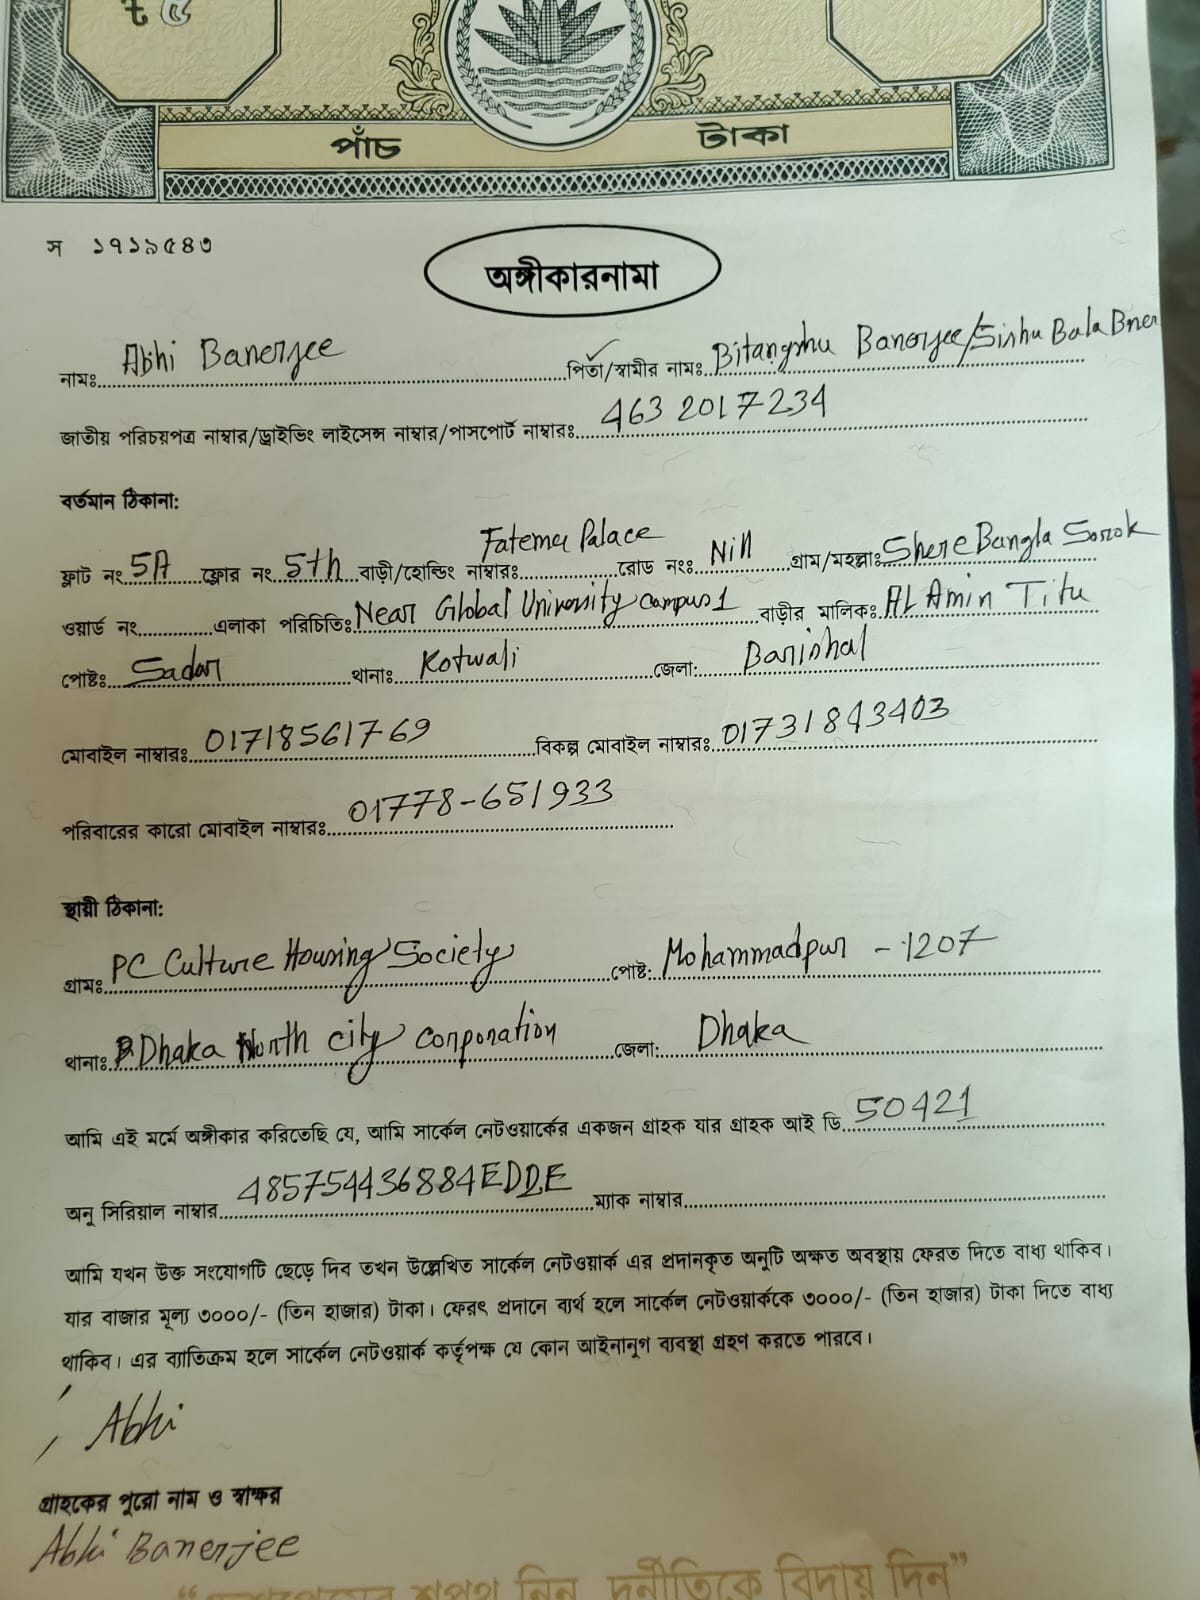 ৳ ৫
পাঁচ টাকা
স ১৭১৯৫৪৩
অঙ্গীকারনামা
নামঃ Abhi Banerjee পিতা/স্বামীর নামঃ Bitangshu Banerjee/Sinhu Bala Bner
জাতীয় পরিচয়পত্র নাম্বার/ড্রাইভিং লাইসেন্স নাম্বার/পাসপোর্ট নাম্বারঃ 463 2017234
বর্তমান ঠিকানা:
ফ্লাট নং 5A ফ্লোর নং 5th বাড়ী/হোল্ডিং নাম্বারঃ Fatema Palace রোড নংঃ Nill গ্রাম/মহল্লাঃ Shere Bangla Sorok
ওয়ার্ড নং এলাকা পরিচিতিঃ Near Global University campus 1 বাড়ীর মালিকঃ AL Amin Titu
পোষ্টঃ Sadar থানাঃ Kotwali জেলা: Barishal
মোবাইল নাম্বারঃ 01718561769 বিকল্প মোবাইল নাম্বারঃ 01731843403
পরিবারের কারো মোবাইল নাম্বারঃ 01778-651933
স্থায়ী ঠিকানা:
গ্রামঃ PC Culture Housing Society পোষ্ট: Mohammadpur - 1207
থানাঃ Dhaka North city corporation জেলা: Dhaka
আমি এই মর্মে অঙ্গীকার করিতেছি যে, আমি সার্কেল নেটওয়ার্কের একজন গ্রাহক যার গ্রাহক আই ডি 50421
অনু সিরিয়াল নাম্বার 485754436884EDDE ম্যাক নাম্বার
আমি যখন উক্ত সংযোগটি ছেড়ে দিব তখন উল্লেখিত সার্কেল নেটওয়ার্ক এর প্রদানকৃত অনুটি অক্ষত অবস্থায় ফেরত দিতে বাধ্য থাকিব।
যার বাজার মূল্য ৩০০০/- (তিন হাজার) টাকা। ফেরৎ প্রদানে ব্যর্থ হলে সার্কেল নেটওয়ার্ককে ৩০০০/- (তিন হাজার) টাকা দিতে বাধ্য
থাকিব। এর ব্যাতিক্রম হলে সার্কেল নেটওয়ার্ক কর্তৃপক্ষ যে কোন আইনানুগ ব্যবস্থা গ্রহণ করতে পারবে।
Abhi
গ্রাহকের পুরো নাম ও স্বাক্ষর
Abhi Banerjee
শপথ নিন, দুর্নীতিকে বিদায় দিন”